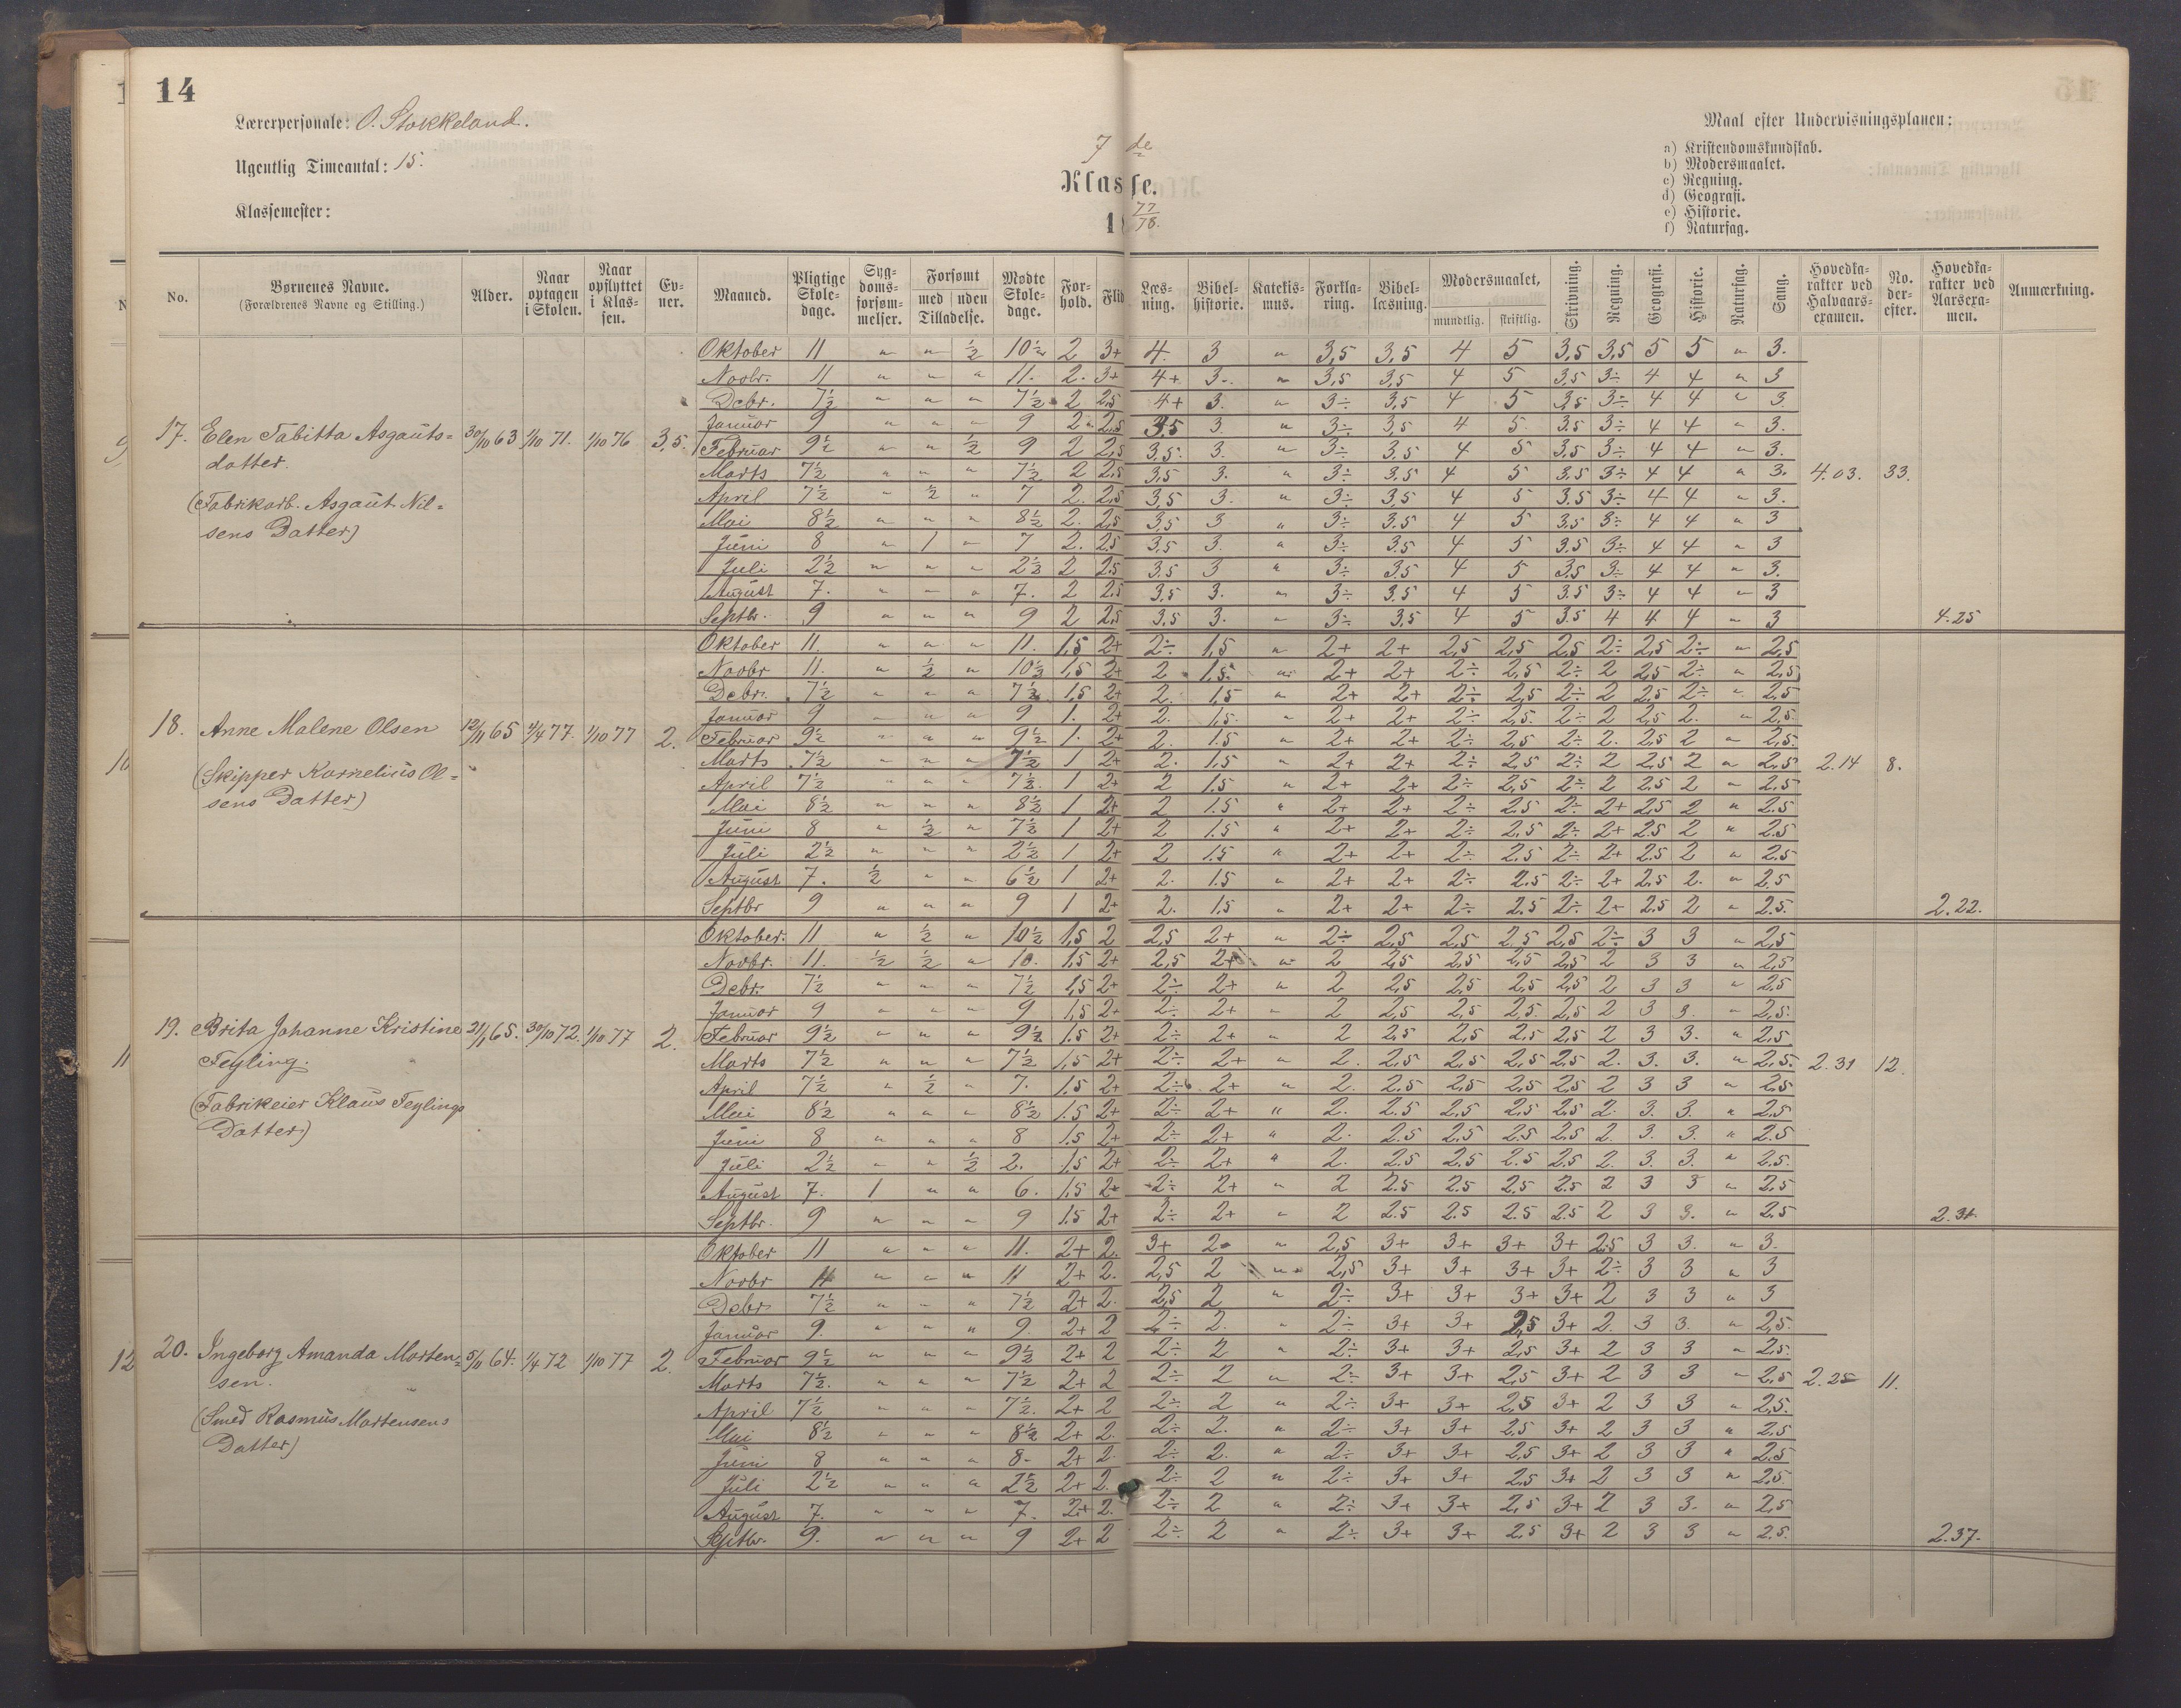 14
Lærerpersonale: O. Stokkeland.
Ugentlig Timeantal: 15.
Klassemester:
7 de
Klasse.
18 77/78.
Maal efter Undervisningsplanen:
a) Kristendomskundskab.
b) Modersmaalet.
c) Regning.
d) Geografi.
e) Historie.
f) Naturfag.
No. Børnenes Navne. (Forældrenes Navne og Stilling.) Alder. Naar optagen i Skolen. Naar opflyttet i Klassen. Evner. Maaned. Pligtige Skoledage. Sygdomsforsømmelser. Forsømt med uden Tilladelse. Mødte Skoledage. Forhold. Flid Læsning. Bibelhistorie. Katekismus. Forklaring. Bibellæsning. Modersmaalet, mundtlig. skriftlig. Skrivning. Regning. Geografi. Historie. Naturfag. Sang. Hovedkarakter ved Halvaarsexamen. No. derefter. Hovedkarakter ved Aarsexamen. Anmærkning.
17. Elen Tabitta Asgauts= 30/10 63 1/10 71. 1/10 76 3,5.
datter.
(Fabrikarb. Asgaut Nil=
sens Datter)
Oktober 11 " " 1/2 10 1/2 2 3+ 4. 3 " 3,5 3,5 4 5 3,5 3,5 5 5 " 3.
Novbr. 11 " " " 11. 2. 3+ 4+ 3. " 3,5 3,5 4 5 3,5 3÷ 4 4 " 3
Debr. 7 1/2 " " " 7 1/2 2 2,5 4+ 3. " 3÷ 3,5 4 5 3,5 3÷ 4 4 " 3.
Januar 9 " " " 9 2 2,5 3,5 3. " 3÷ 3,5 4 5 3.5 3÷ 4 4 " 3.
Februar 9 1/2 " " 1/2 9 2 2,5 3,5. 3. " 3÷ 3,5 4 5 3,5 3÷ 4 4 " 3.
Marts 7 1/2 " " " 7 1/2 2 2.5 3,5 3. " 3÷ 3.5 4 5 3.5 3÷ 4 4 " 3. 4.03. 33.
April 7 1/2 " 1/2 " 7 2. 2,5 3,5 3. " 3÷ 3,5 4 5 3.5 3÷ 4 4 " 3.
Mai 8 1/2 " " " 8 1/2 2. 2,5 3,5 3 " 3÷ 3.5 4 5 3.5 3÷ 4 4 " 3
Juni 8 " 1 " 7 2. 2.5 3.5 3. " 3÷ 3.5 4 5 3.5 3÷ 4 4 " 3
Juli 2 1/2 " " " 2 1/2 2 2.5 3.5 3 " 3÷ 3.5 4 5 3.5 3÷ 4 4 " 3.
August 7. " " " 7. 2 2.5 3.5 3. " 3÷ 3.5 4 5 3.5 3÷ 4 4 " 3
Septbr. 9 " " " 9 2 2,5 3.5 3. " 3÷ 3,5 4 5 3.5 4 4 4 " 3 4.25
18. Anne Malene Olsen 12/11 65 4/4 77. 1/10 77 2.
(Skipper Kornelius Ol=
sens Datter)
Oktober 11. " " " 11. 1,5 2+ 2÷ 1,5 " 2+ 2+ 2,5 2,5 2,5 2÷ 2,5 2÷ " 2,5
Novbr 11. " 1/2 " 10 1/2 1,5 2+ 2 1,5. " 2+ 2+ 2÷ 2,5 2÷ 2 2,5 2÷ " 2,5
Debr. 7 1/2 " " " 7 1/2 1.5 2+ 2. 1,5 " 2+ 2+ 2÷ 2,5 2÷ 2 2.5 2÷ " 2,5
Januar 9 " " " 9 1. 2+ 2. 1,5. " 2+ 2+ 2÷ 2,5. 2÷ 2 2,5 2. " 2,5.
Februar 9 1/2 " " " 9 1/2 1. 2+ 2. 1.5 " 2+ 2+ 2÷ 2,5 2÷ 2. 2,5 2 " 2,5.
Marts 7 1/2 " " " 7 1/2 1 2+ 2. 1.5 " 2+ 2+ 2÷ 2.5 2÷ 2 2,5 2 " 2,5 2.14 8.
April 7 1/2 " " " 7 1/2. 1 2+ 2 1,5 " 2+ 2+ 2÷ 2,5 2÷ 2 2.5 2 " 2.5
Mai 8 1/2 " " " 8 1/2 1 2+ 2 1.5 " 2+ 2+ 2÷ 2.5 2÷ 2+ 2,5 2 " 2.5
Juni 8 " 1/2 " 7 1/2 1 2+ 2 1.5 " 2+ 2+ 2÷ 2,5 2÷ 2+ 2.5 2 " 2.5
Juli 2 1/2 " " " 2 1/2 1 2+ 2 1.5 " 2+ 2+ 2÷ 2.5 2÷ 2+ 2.5 2 " 2.5
August 7. 1/2 " " 6 1/2 1 2+ 2. 1.5 " 2+ 2+ 2÷ 2.5 2÷ 2+ 2,5 2. " 2,5
Septbr 9 " " " 9 1 2+ 2. 1.5 " 2+ 2+ 2÷ 2.5 2÷ 2+ 2.5 2 " 2.5. 2.22.
19. Brita Johanne Kristine 21/1 65. 30/10 72. 1/10 77 2.
Feyling.
(Fabrikeier Klaus Feylings
Datter)
Oktober. 11 " 1/2 " 10 1/2 1,5 2 2,5 2+ " 2÷ 2,5 2,5 2,5 2,5 2÷ 3 3 " 2,5
Novbr. 11. 1/2 1/2 " 10. 1,5 2+ 2,5 2+ " 2 2,5 2,5 2,5 2,5 2 3 3 " 2,5
Debr. 7 1/2 " " " 7 1/2 1,5 2+ 2÷ 2+ " 2 2,5 2,5 2,5 2,5 2 3 3 " 2,5
Januar 9 " " " 9 1,5 2+ 2÷ 2+ " 2 2,5 2,5 2,5. 2,5 2 3 3. " 2,5.
Februar 9 1/2 " " " 9 1/2 1.5 2+ 2÷ 2+ " 2 2,5 2,5 2,5 2,5 2 3 3. " 2,5
Marts 7 1/2 " " " 7 1/2 1,5 2+ 2÷ 2+ " 2. 2,5 2,5 2,5 2,5 2. 3. 3. " 2,5. 2.31 12.
April 7 1/2 " 1/2 " 7. 1.5 2+ 2÷ 2+ " 2. 2.5 2,5 2,5 2,5 2 3 3 " 2,5
Mai 8 1/2 " " " 8 1/2 1.5 2+ 2÷ 2+ " 2. 2.5 2,5 2,5 2.5 2. 3. 3. " 2,5
Juni 8 " " " 8 1.5 2+ 2÷ 2+ " 2. 2.5 2,5 2.5 2,5 2. 3. 3. " 2.5
Juli 2 1/2 " " 1/2 2. 1,5 2+ 2÷ 2+ " 2. 2.5 2.5 2.5 2,5 2. 3. 3. " 2.5.
August 7. 1 " " 6. 1.5 2+ 2÷ 2+ " 2 2.5 2.5 2,5 2.5 2 3 3 " 2,5
Septbr. 9 " " " 9 1.5 2+ 2÷ 2+ " 2 2.5 2.5 2.5 2.5 2 3 3. " 2.5 2.31.
20. Ingeborg Amanda Morten= 5/11 64. 1/4 72 1/10 77 2.
sen.
(Smed Rasmus Mortensens
Datter)
Oktober 11 " " " 11. 2+ 2. 3+ 2 " 2,5 3+ 3+ 3+ 3+ 2.5 3 3. " 3.
Novbr 11 " " " 11 2+ 2. 2,5 2 " 2,5 3+ 3+ 3+ 3+ 2÷ 3 3 " 3
Debr 7 1/2 " " " 7 1/2 2+ 2. 2,5 2 " 2÷ 3+ 3+ 3+ 3+ 2 3 3 " 3
Januar 9. " " " 9. 2+ 2 2÷ 2. " 2÷ 3+ 3+ 2,5 3+ 2. 3 3. " 2,5.
Februar 9 1/2 " " " 9 1/2 2+ 2 2÷ 2 " 2÷ 3+ 3+ 2,5 3+ 2 3 3 " 2.5.
Marts 7 1/2. " " " 7 1/2 2+ 2 2÷ 2 " 2÷ 3+ 3+ 2,5 3+ 2 3 3 " 2,5 2.25 11.
April 7 1/2 " " " 7 1/2. 2+ 2 2÷ 2 " 2÷ 3+ 3+ 2,5 3+ 2 3 3 " 2,5.
Mai 8 1/2 " " " 8 1/2 2+ 2. 2÷ 2. " 2÷ 3+ 3+ 2,5 3+ 2 3 3 " 2,5
Juni 8 " " " 8 2+ 2. 2÷ 2. " 2÷ 3+ 3+ 2,5 3+ 2 3 3 " 2,5
Juli 2 1/2 " " " 2 1/2 2+ 2. 2÷ 2 " 2÷ 3+ 3+ 2,5 3+ 2 3 3 " 2,5
August 7. " " " 7. 2+ 2. 2÷ 2 " 2÷ 3+ 3+ 2,5 3+ 2 3 3. " 2,5
Septbr. 9. " " " 9 2+ 2 2÷ 2 " 2÷ 3+ 3+ 2,5 3+ 2 3 3 " 2.5. 2.37.